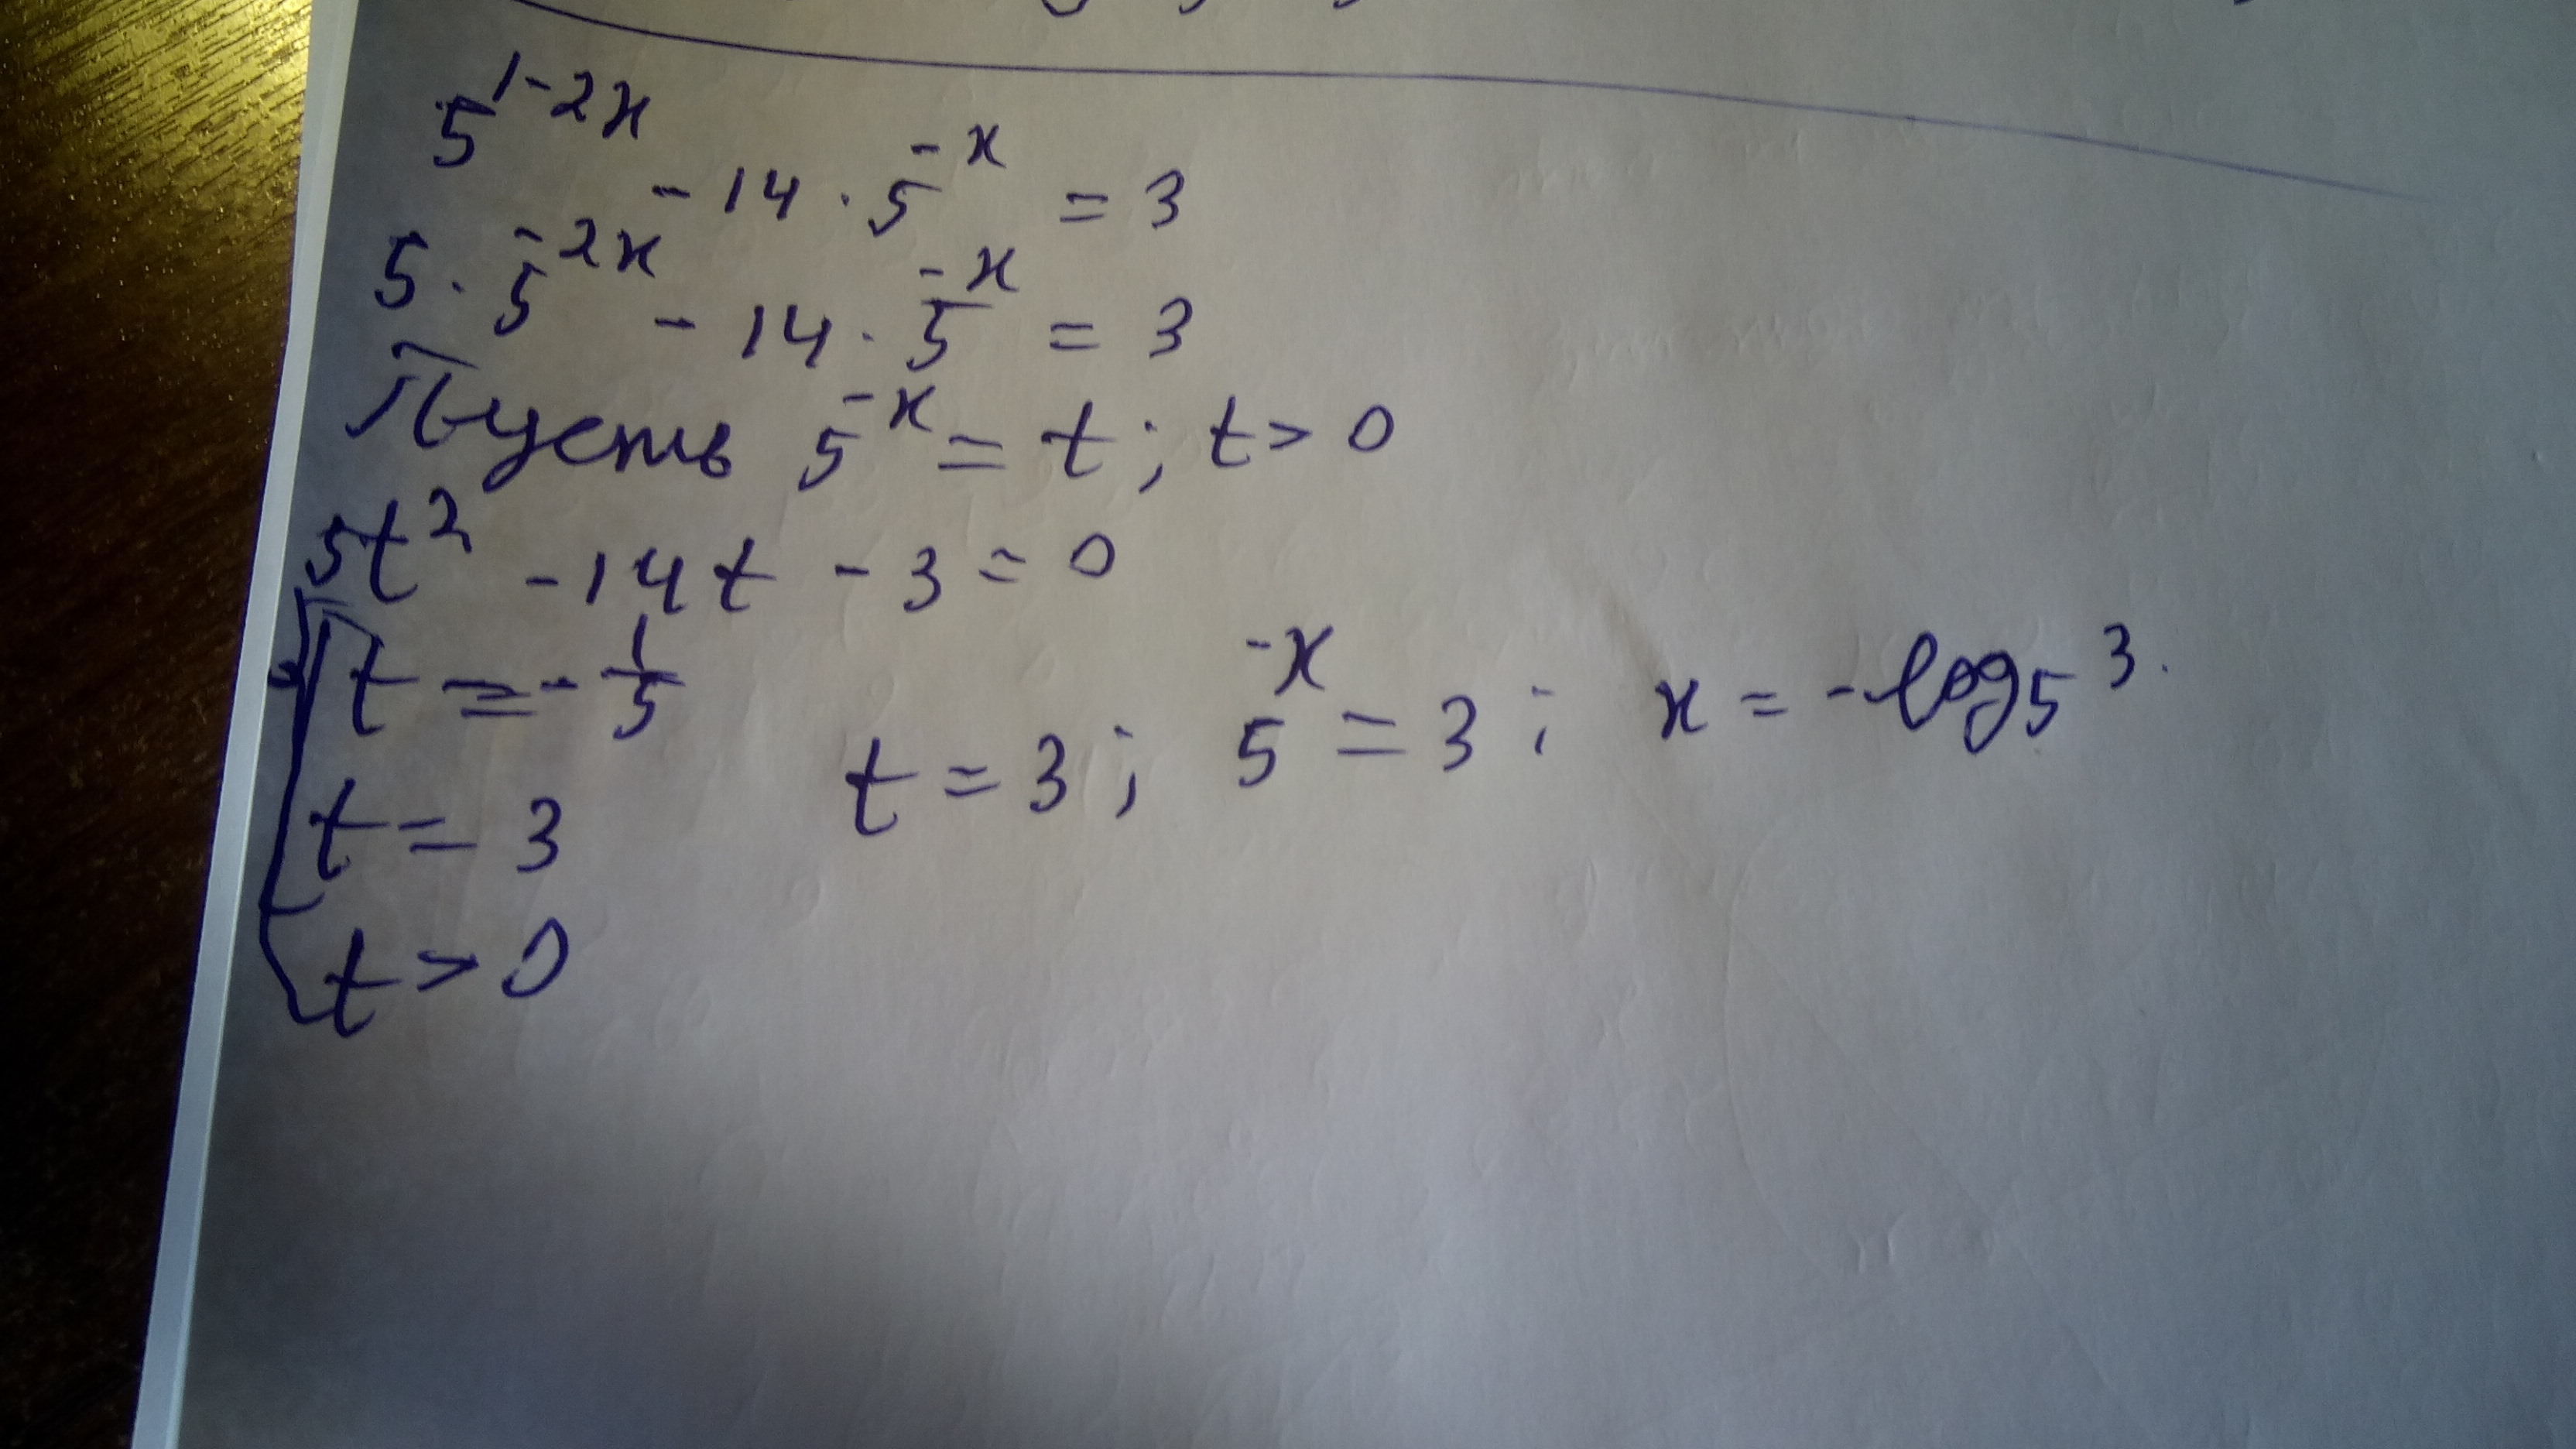 5^{1-2x} - 14 · 5^{-x} = 3
5 · 5^{-2x} - 14 · 5^{-x} = 3
Пусть 5^{-x} = t; t > 0
5t² - 14t - 3 = 0
t = - 1/5
t = 3
t > 0
t = 3; 5^{-x} = 3; x = -log₅ 3.